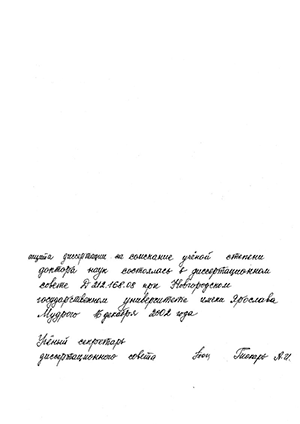 ащита диссертации на соискание учёной степени
доктора наук состоялась в диссертационном
совете Д 212.168.08 при Новгородском
государственном университете имени Ярослава
Мудрого 16 декабря 2002 года
Учёный секретарь
диссертационного совета Пискарь А.И.